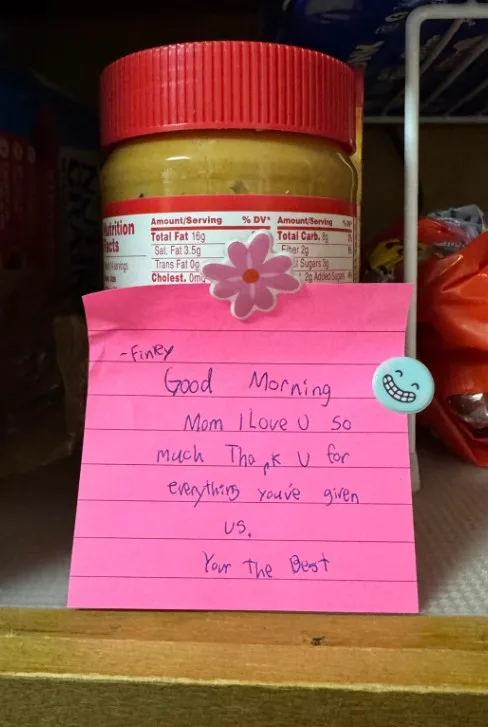 Nutrition
Facts
Amount/Serving % DV* Amount/Serving
Total Fat 16g Total Carb. 8g
Sat. Fat 3.5g Fiber 2g
Trans Fat 0g Sugars 3g
Cholest. 0mg 2g Added Sugars
Good Morning
Mom I Love U so
much Thank U for
everything you've given
us.
Your the Best